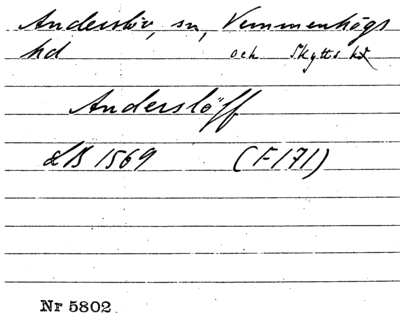 Anderslöv, sn, Vemmenhögs
hd och Skytts hd
Anderslöff
LB 1569 (F171)
Nr 5802